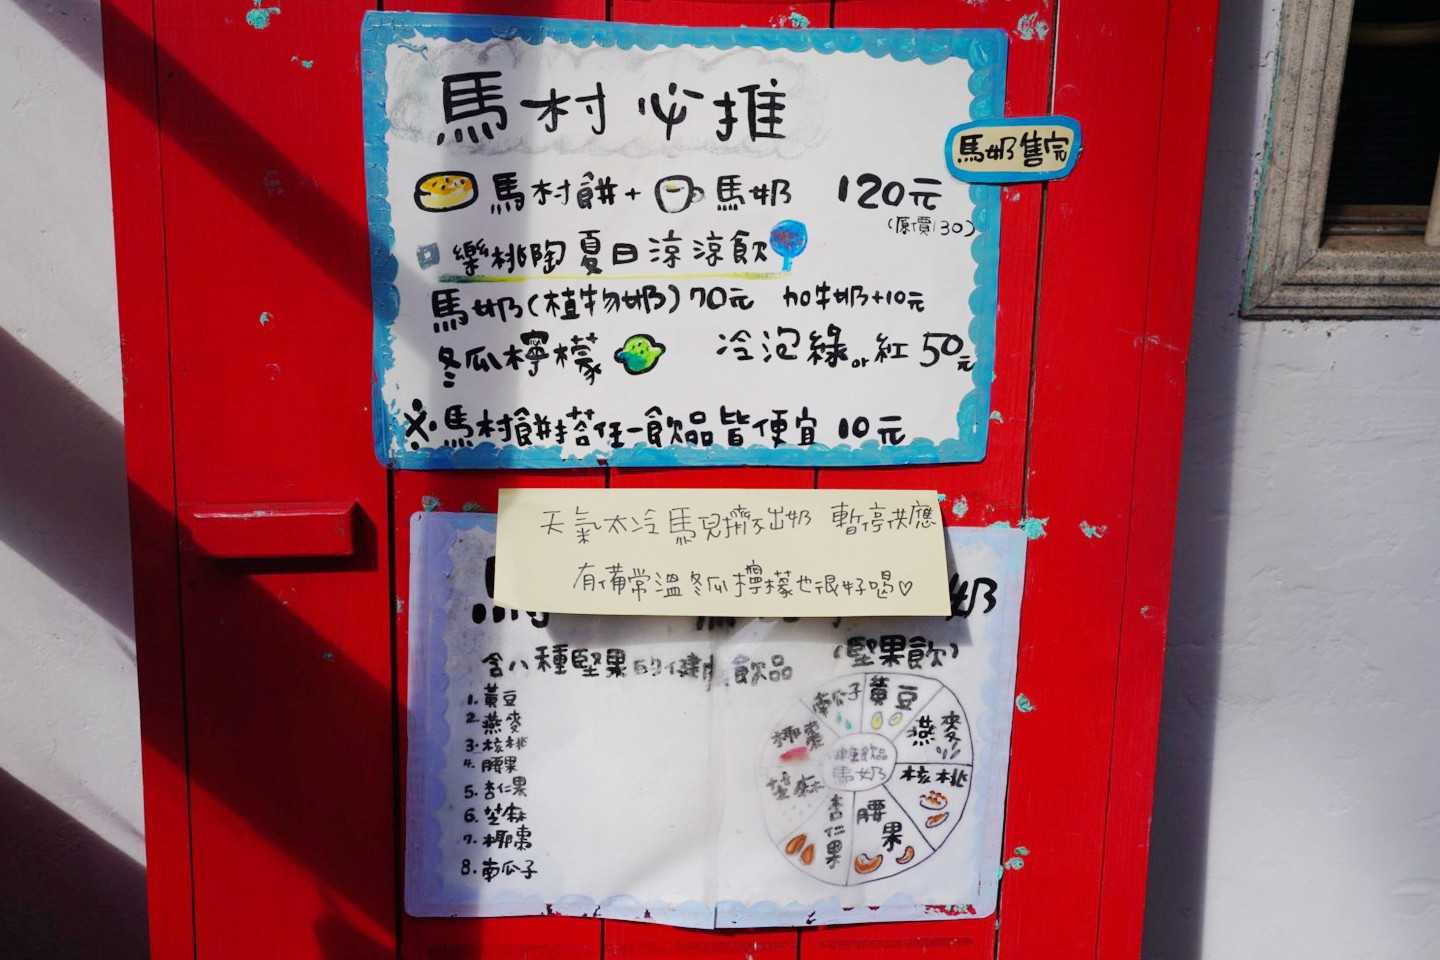 馬村必推
馬奶售完
馬村餅+馬奶 120元
(原價130)
樂桃陶夏日涼涼飲
馬奶(植物奶)70元 加牛奶+10元
冬瓜檸檬 冷泡綠or紅50元
※馬村餅搭任一飲品皆便宜10元
天氣太冷馬兒擠不出奶 暫停供應
有備常溫冬瓜檸檬也很好喝♡
奶
(堅果飲)
含八種堅果的健康飲品
1.黃豆
2.燕麥
3.核桃
4.腰果
5.杏仁果
6.芝麻
7.椰棗
8.南瓜子
南瓜子
黃豆
燕麥
核桃
腰果
杏仁果
芝麻
椰棗
飲品
馬奶